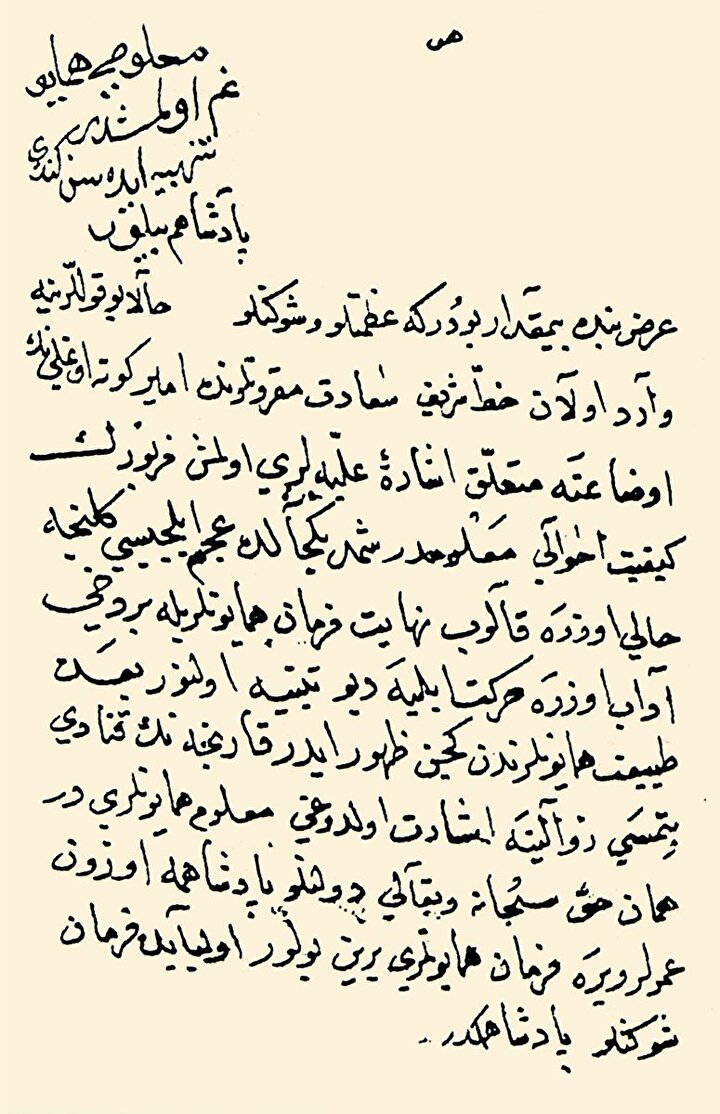 معلوم همايو
نم اولمشدر
تنبيه ايده سن كندى
پادشاهم بيلور
عرض بنده بيمقدار بودركه عظمتلو و شوكتلو حالا بو قوللرينه
وارد اولان خط شريف سعادت مقرونلرنده امير كونه اوغلى نك
اوضاعنه متعلق اشارۀ عليه لرى اولمش
كيفيت احوالى معلوممدر شمديكى حالده عجم ايلچيسى كلنجه
حالى اوزره قالوب نهايت فرمان همايونلريله بر دخى
آداب اوزره حركت ايليه ديو تنبيه اولنور بعده
طبيعت همايونلرندن كچن ظهور ايدر قارنجه نك قنادى
بتمسى زوالينه اشارت اولدوغى معلوم همايونلرى در
همان حق سبحانه وتعالى دولتلو پادشاهمه اوزون
عمرلر ويره فرمان همايونلرى يرين بولور فرمان
شوكتلو پادشاهمكدر